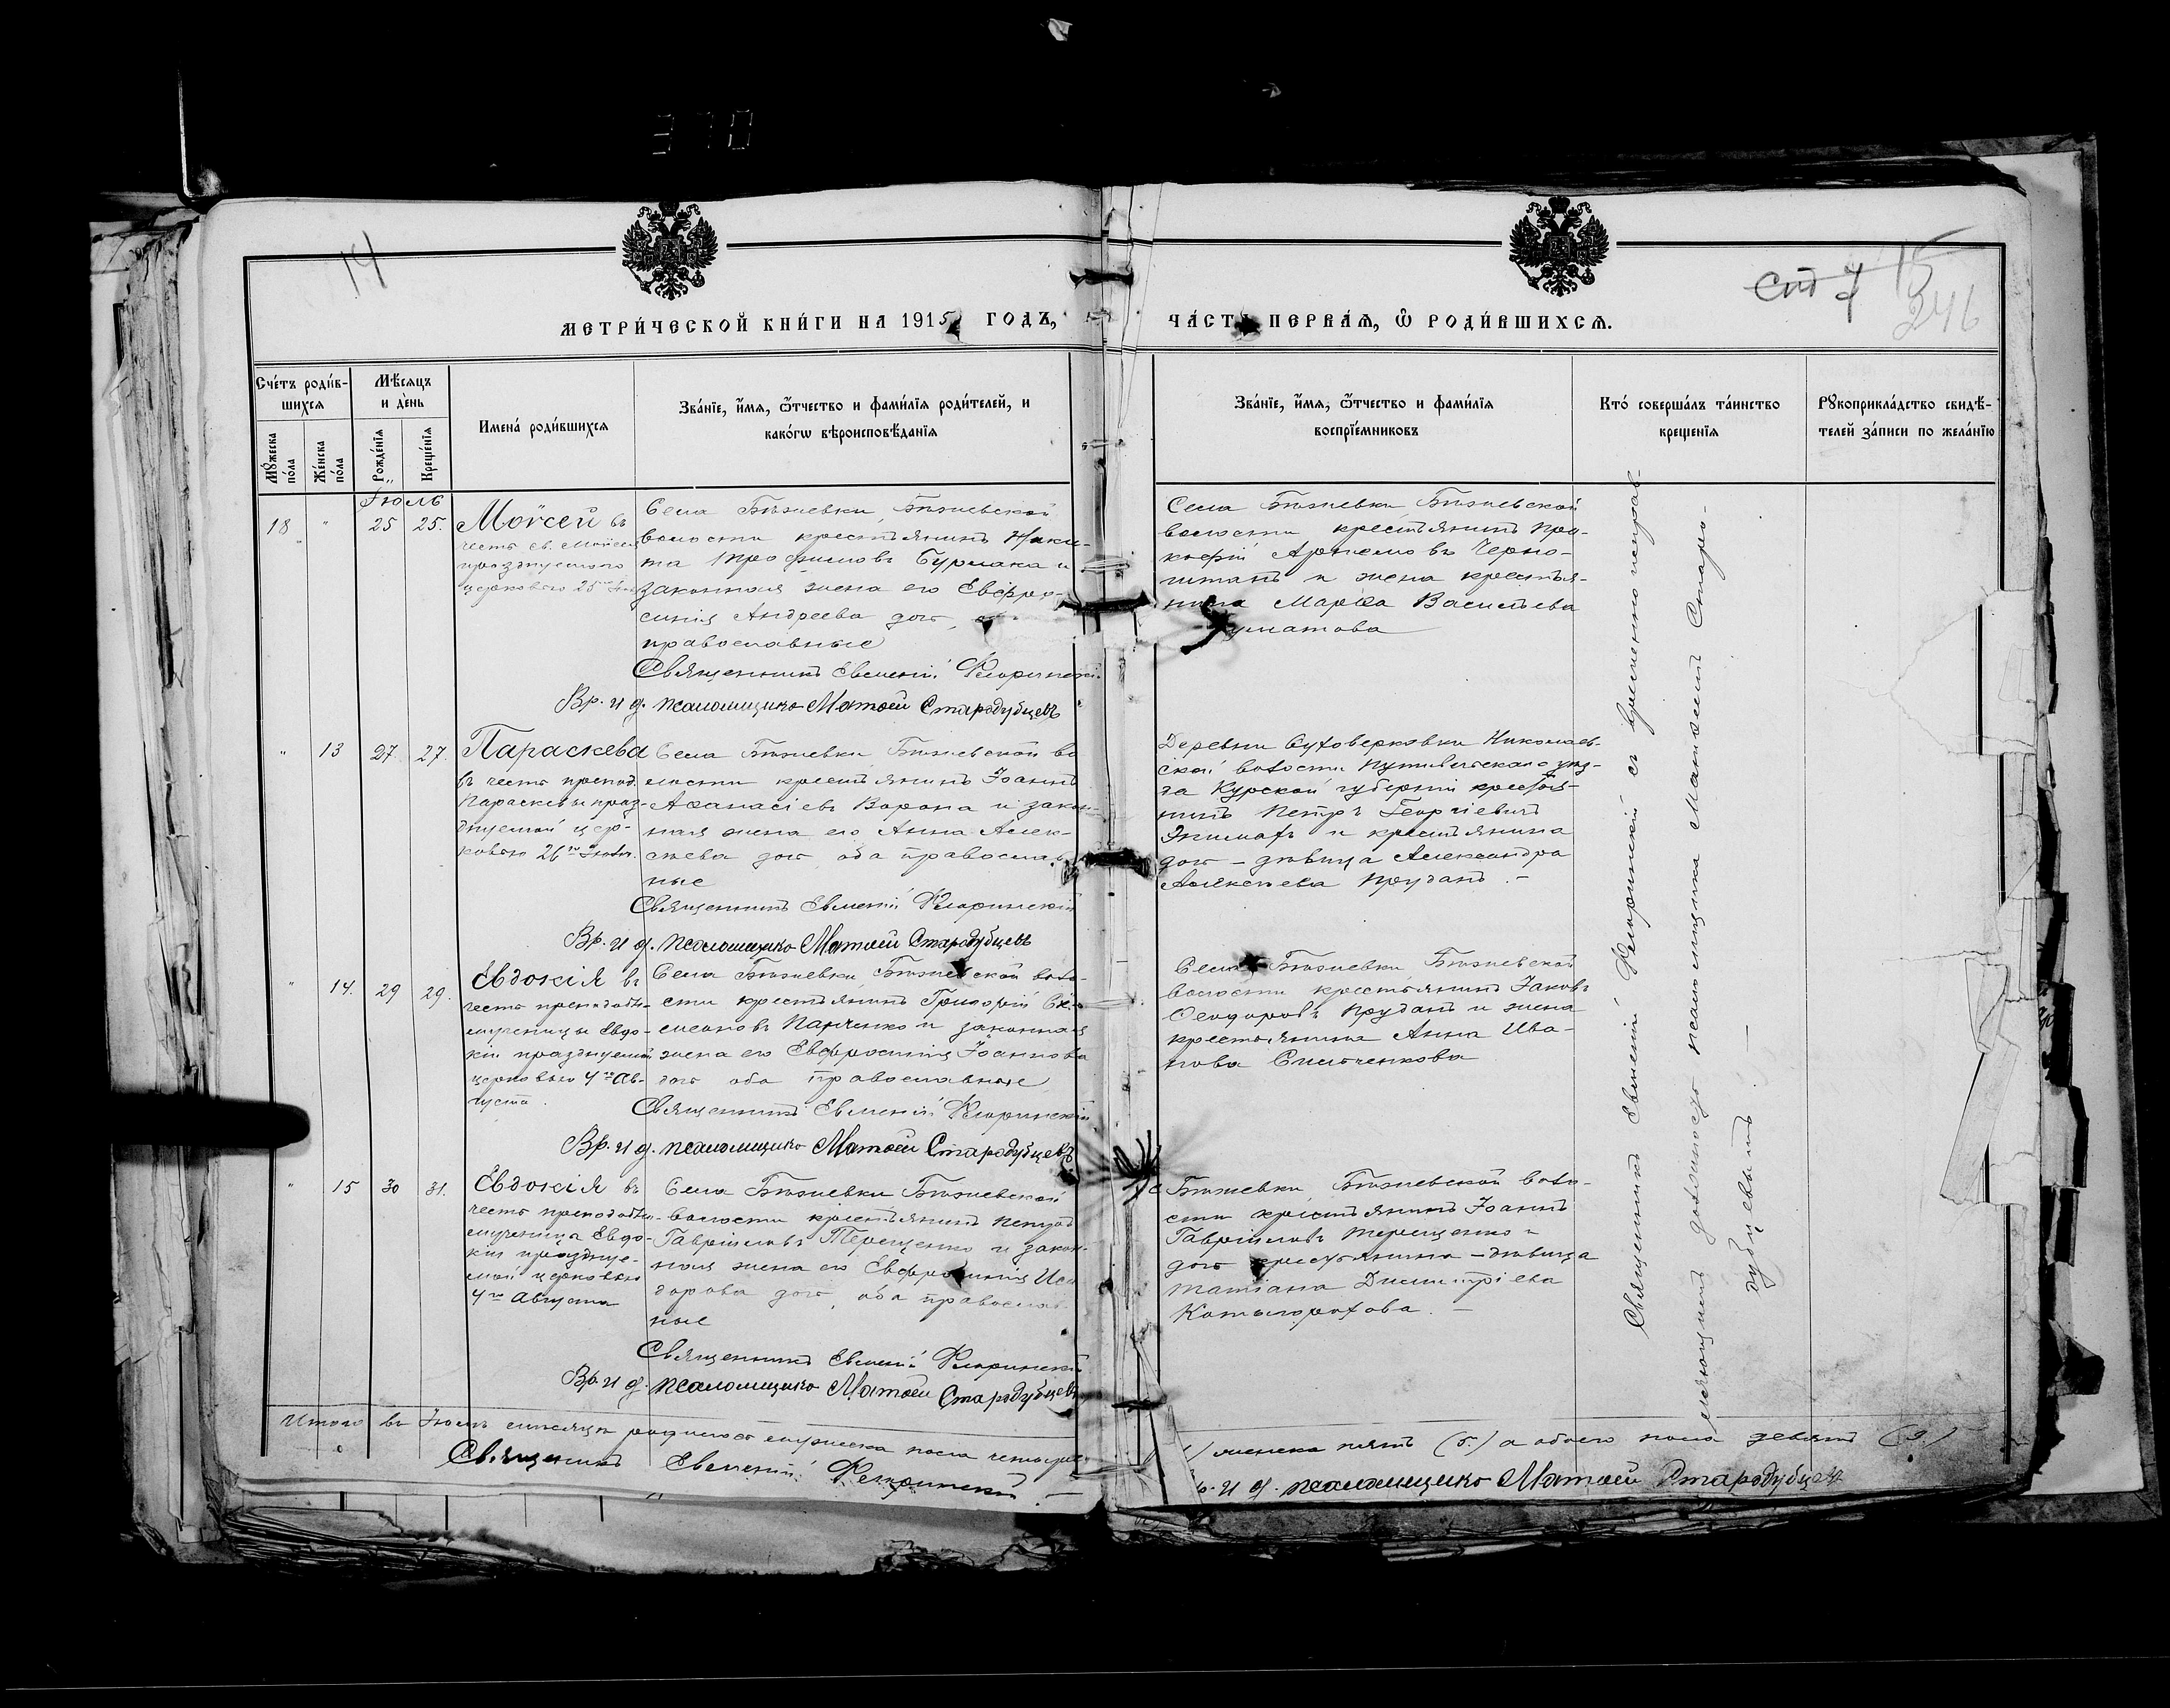 370
14
стр 7 15
246
МЕТРИ́ЧЕСКОЙ КНИ́ГИ НА 1915 ГОДЪ,
ЧА́СТЬ ПЕРВАЯ, Ѡ РОДИ́ВШИХСЯ.
Сче́тъ роди́в-
шихся
Мѣ́сяцъ
и де́нь
Му́жеска по́ла
Же́нска по́ла
Рожде́нїя
Креще́нїя
Имена́ роди́вшихся
Зва́нїе, и́мя, ѻ́тчество и фами́лїя роди́телей, и
како́гѡ вѣроисповѣ́данїя
Зва́нїе, и́мя, ѻ́тчество и фами́лїя
воспрїе́мниковъ
Кто́ соверша́лъ та́инство
креще́нїя
Рꙋкоприкла́дство свидѣ́-
телей за́писи по жела́нїю
Іюль
18 " 25 25.
Моѵсей въ
честь св. Моѵсея
празднуемаго
церковью 25го Іюля
Села Бѣжевки, Бѣжевской
волости крестьянинъ Ники-
та Трофимовъ Бурлака и
законная жена его Евфро-
синія Андреева доч.
православные
Священникъ Евменій Флоринскій
Вр. и д. псаломщика Матѳей Стародубцевъ
Села Бѣжевки Бѣжевской
волости крестьянинъ Про-
кофій Артемовъ Черно-
штанъ и жена крестья-
нина Марѳа Васильева
" 13 27. 27.
Параскева
въ честь препод.
Параскевы праз-
днуемой цер-
ковью 26го Іюля.
Села Бѣжевки, Бѣжевской во
лости крестьянинъ Іоаннъ
Аѳанасіевъ Ворона и закон-
ная жена его Анна Алек-
сѣева доч. оба православ-
ные
Священникъ Евменій Флоринскій
Вр. и д. псаломщика Матѳей Стародубцевъ
Деревни Сутоверховки Николаев-
ской волости Путивльскаго уѣз-
да Курской губерніи крестья-
нинъ Петръ Георгіевичъ
Экимовъ и крестьянина
доч - дѣвица Александра
Алексѣева Пруданъ. -
" 14. 29 29.
Евдокія въ
честь преподобно-
мученицы Евдо-
кіи празднуемой
церковью 4го Ав-
густа.
Села Бѣжевки, Бѣжевской воло-
сти крестьянинъ Григорій
Панченко и законная
жена его Евфросинія Іоаннова
доч. оба православные
Священникъ Евменій Флоринскій
Вр. и д. псаломщика Матѳей Стародубцевъ
Села Бѣжевки Бѣжевской
волости крестьянинъ Іаковъ
Ѳеодоровъ Пруданъ и жена
крестьянина Анна Ива-
нова
" 15 30 31.
Евдокія въ
честь преподобно-
мученицы Евдо-
кіи празднуе-
мой церковью
4го Августа
Села Бѣжевки Бѣжевской
волости крестьянинъ
Гавріиловъ Терещенко и закон-
ная жена его Евфросинія Иси
дорова доч., оба православ-
ные
Священникъ Евменій Флоринскій
Вр. и д. псаломщика Матѳей Стародубцевъ
с. Бѣжевки, Бѣжевской воло-
сти крестьянинъ Іоаннъ
Гавріиловъ Терещенко и
доч крестьянина - дѣвица
Татіана Димитріева
Священникъ Евменій Флоринскій съ временно исправ-
ляющимъ должность псаломщика Матѳеемъ Старо-
дубцевымъ. -
Итого въ Іюлѣ мѣсяцѣ родилось мужеска пола четыре
) женска пять (5.) а обоего пола девять (9.)
Священникъ Евменій Флоринскій. -
р. и д. псаломщика Матѳей Стародубцевъ